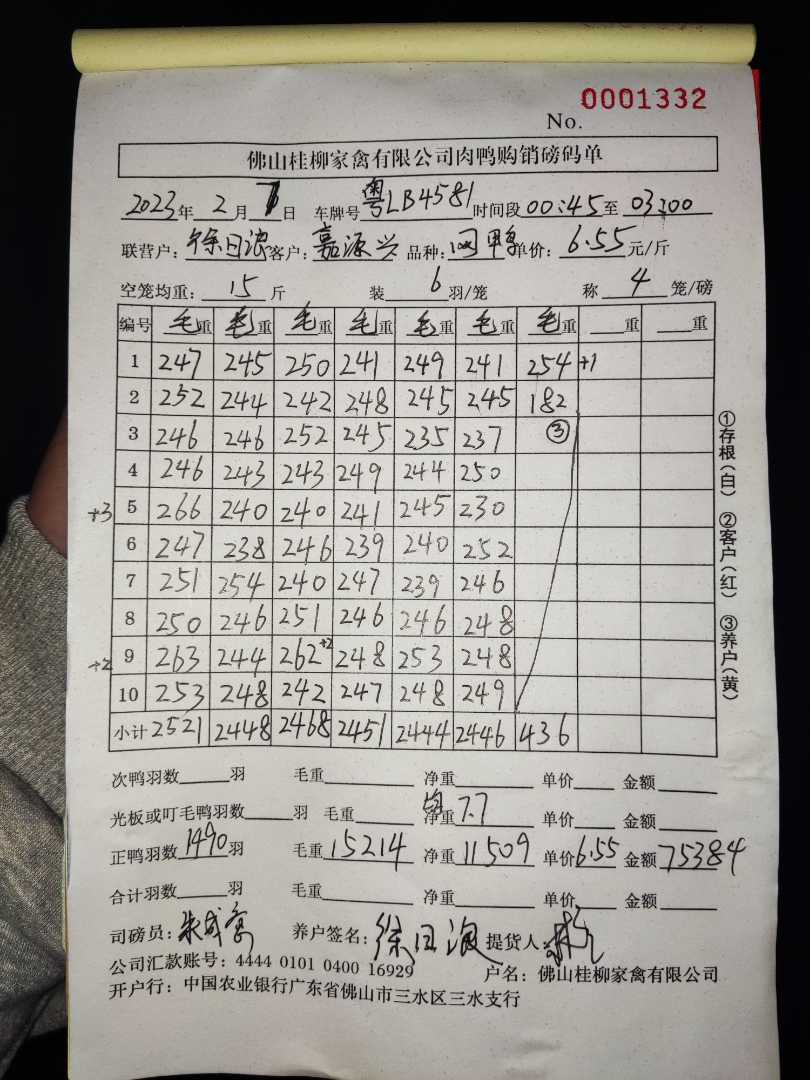 0001332
No.
佛山桂柳家禽有限公司肉鸭购销磅码单
2023年 2月 7日 车牌号 粤LB4581 时间段 00:45至 03:00
联营户：徐日浪 客户：嘉源兴 品种：网鸭 单价：6.55 元/斤
空笼均重：15 斤 装 6 羽/笼 称 4 笼/磅
编号 毛重 毛重 毛重 毛重 毛重 毛重 毛重 重 重
1 247 245 250 241 249 241 254 +1
2 252 244 242 248 245 245 182
3 246 246 252 245 235 237 ③
4 246 243 243 249 244 250
+3 5 266 240 240 241 245 230
6 247 238 246 239 240 252
7 251 254 240 247 239 246
8 250 246 251 246 246 248
+2 9 263 244 262 +2 248 253 248
10 253 248 242 247 248 249
小计 2521 2448 2468 2451 2444 2446 436
①存根(白) ②客户(红) ③养户(黄)
次鸭羽数 羽 毛重 净重 单价 金额
光板或叮毛鸭羽数 羽 毛重 净重 均 7.7 单价 金额
正鸭羽数 1490 羽 毛重 15214 净重 11509 单价 6.55 金额 75384
合计羽数 羽 毛重 净重 单价 金额
司磅员： 养户签名：徐日浪 提货人：
公司汇款账号：4444 0101 0400 16929 户名：佛山桂柳家禽有限公司
开户行：中国农业银行广东省佛山市三水区三水支行